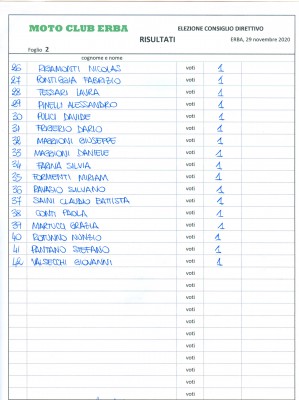 MOTO CLUB ERBA
ELEZIONE CONSIGLIO DIRETTIVO
RISULTATI
ERBA, 29 novembre 2020
Foglio 2
cognome e nome
26 RIGAMONTI NICOLAS voti 1
27 PONTIGGIA FABRIZIO voti 1
28 TESSARI LAURA voti 1
29 PINELLI ALESSANDRO voti 1
30 PULICI DAVIDE voti 1
31 FRIGERIO DARIO voti 1
32 MAGGIONI GIUSEPPE voti 1
33 MAGGIONI DANIELE voti 1
34 FARINA SILVIA voti 1
35 FORMENTI MIRIAM voti 1
36 SILVANO voti 1
37 SAINI CLAUDIO BATTISTA voti 1
38 CONTI PAOLA voti 1
39 MARTUCCI GRAZIA voti 1
40 ROTUNNO NUNZIO voti 1
41 PANTANO STEFANO voti 1
42 VALSECCHI GIOVANNI voti 1
voti
voti
voti
voti
voti
voti
voti
voti